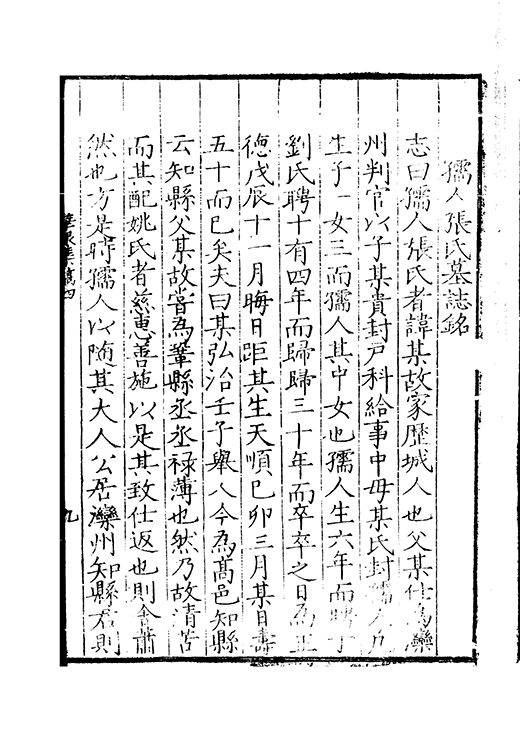 孺人張氏墓誌銘
志曰孺人張氏者諱某故家歷城人也父某仕為灤
州判官以子某貴封戸科給事中母某氏封孺人乃
生子一女三而孺人其中女也孺人生六年而聘于
劉氏聘十有四年而歸歸三十年而卒卒之日為正
德戊辰十一月晦日距其生天順己卯三月某日壽
五十而已矣夫曰某弘治壬子舉人今為髙邑知縣
云知縣父某故甞為鞏縣丞丞禄薄也然乃故清苦
而其配姚氏者慈惠善施以是其致仕返也則舍蕭
然也方是時孺人以随其大人公居灤州知縣君則
集稿四
九